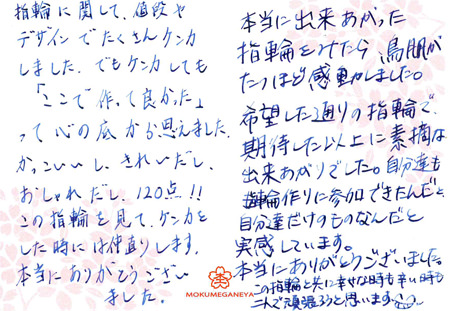 指輪に関して、値段や
デザインでたくさんケンカ
しました。でもケンカしても
「ここで作って良かった」
って心の底から思えました。
かっこいいし、きれいだし、
おしゃれだし、120点!!
この指輪を見て、ケンカを
した時には仲直りします。
本当にありがとうござい
ました。
本当に出来あがった
指輪をみたら、鳥肌が
たつほど感動しました。
希望した通りの指輪で、
期待した以上に素敵な
出来あがりでした。自分達も
指輪作りに参加できたんだと、
自分達だけのものなんだと
実感しています。
本当にありがとうございました。
この指輪と共に幸せな時も辛い時も
二人で頑張ろうと思います。
MOKUMEGANEYA